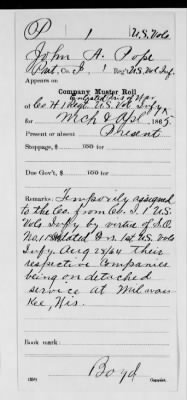 P 1 U.S. Vols.
John A. Pope
Pvt., Co. I, 1 Reg't U.S. Vol. Inf.
Appears on
Company Muster Roll
Enlisted Pris of War
Co. H 1 Regt. U.S. Vol. Infy
for Mch & Apl, 1865.
Present or absent Present
Stoppage, $ 100 for
Due Gov't, $ 100 for
Remarks: Temporarily assigned
to the Co. from Co. I. 1 U.S.
Vols. Infy by virtue of S.O.
No. 1 dated 1st U.S. Vols
Infy Aug 28/64 their
respective companies
being on detached
service at Milwau-
kee, Wis.
Book mark:
Boyd
Copyist.